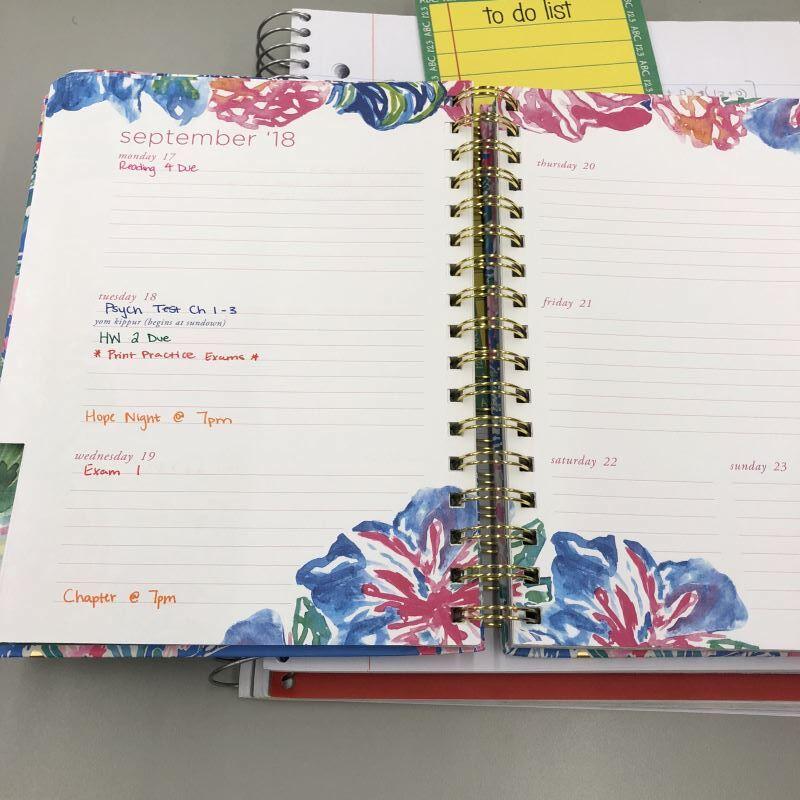 to do list
ABC 123 ABC 123
ABC 123 ABC 123
september '18
monday 17
Reading 4 Due
tuesday 18
Psych Test Ch 1-3
yom kippur (begins at sundown)
HW 2 Due
* Print Practice Exams *
Hope Night @ 7pm
wednesday 19
Exam 1
Chapter @ 7pm
thursday 20
friday 21
saturday 22
sunday 23